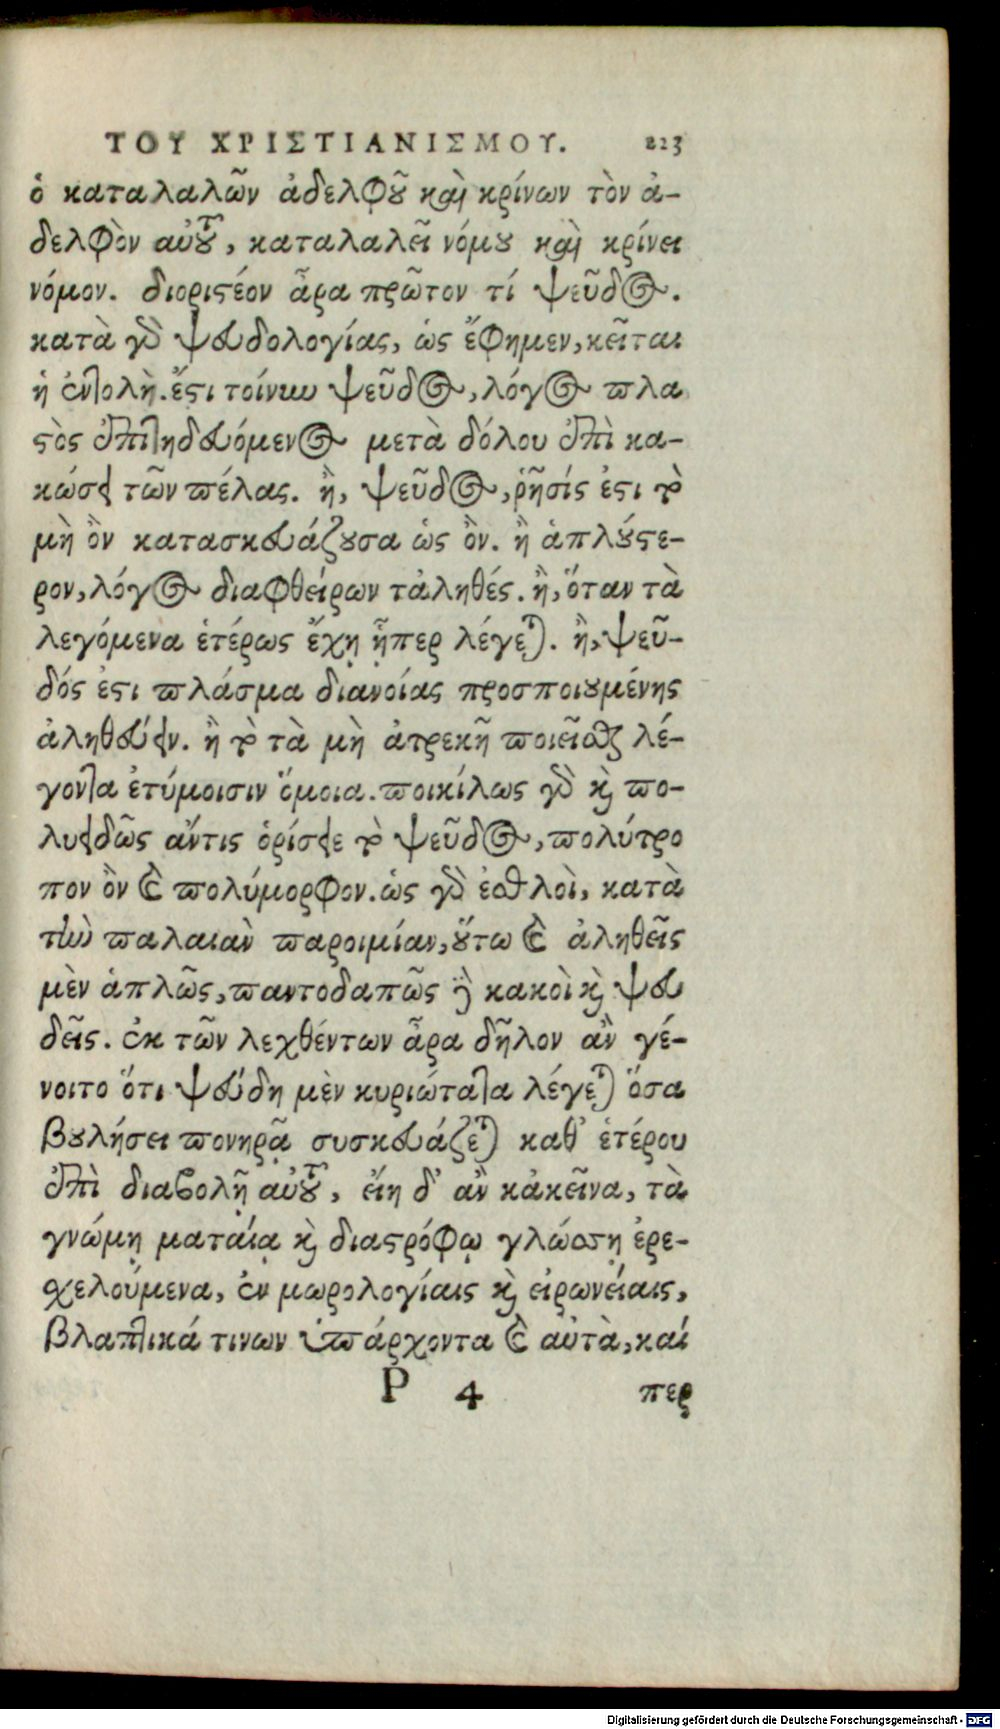 ΤΟΥ ΧΡΙΣΤΙΑΝΙΣΜΟΥ. 223
ὁ καταλαλῶν ἀδελφοῦ καὶ κρίνων τὸν ἀ-
δελφὸν αὐτοῦ, καταλαλεῖ νόμου καὶ κρίνει
νόμον. διοριστέον ἆρα πρῶτον τί ψεῦδος.
κατὰ γὰρ ψευδολογίας, ὡς ἔφημεν, κεῖται
ἡ ἐντολή. ἔστι τοίνυν ψεῦδος, λόγος πλα
στὸς ἐπιτηδευόμενος μετὰ δόλου ἐπὶ κα-
κώσει τῶν πέλας. ἢ, ψεῦδος, ῥῆσίς ἐστι τὸ
μὴ ὂν κατασκευάζουσα ὡς ὄν. ἢ ἁπλούστε-
ρον, λόγος διαφθείρων τἀληθές. ἢ, ὅταν τὰ
λεγόμενα ἑτέρως ἔχῃ ᾗπερ λέγεται. ἢ, ψεῦ-
δός ἐστι πλάσμα διανοίας προσποιουμένης
ἀληθεύειν. ἢ τὸ τὰ μὴ ἀτρεκῆ ποιεῖσθαι λέ-
γοντα ἐτύμοισιν ὅμοια. ποικίλως γὰρ καὶ πο-
λυειδῶς ἄντις ὁρίσειε τὸ ψεῦδος, πολύτρο
πον ὂν καὶ πολύμορφον. ὡς γὰρ ἐσθλοὶ, κατὰ
τὴν παλαιὰν παροιμίαν, οὕτω καὶ ἀληθεῖς
μὲν ἁπλῶς, παντοδαπῶς δὲ κακοὶ καὶ ψευ
δεῖς. ἐκ τῶν λεχθέντων ἆρα δῆλον ἂν γέ-
νοιτο ὅτι ψεύδη μὲν κυριώτατα λέγεται ὅσα
βουλήσει πονηρᾷ συσκευάζεται καθ' ἑτέρου
ἐπὶ διαβολῇ αὐτοῦ, εἴη δ' ἂν κἀκεῖνα, τὰ
γνώμῃ ματαίᾳ καὶ διαστρόφῳ γλώσσῃ ἐρε-
χελούμενα, ἐν μωρολογίαις καὶ εἰρωνείαις,
βλαπτικά τινων ὑπάρχοντα καὶ αὐτὰ, καί
P 4 περ
Digitalisierung gefördert durch die Deutsche Forschungsgemeinschaft - DFG